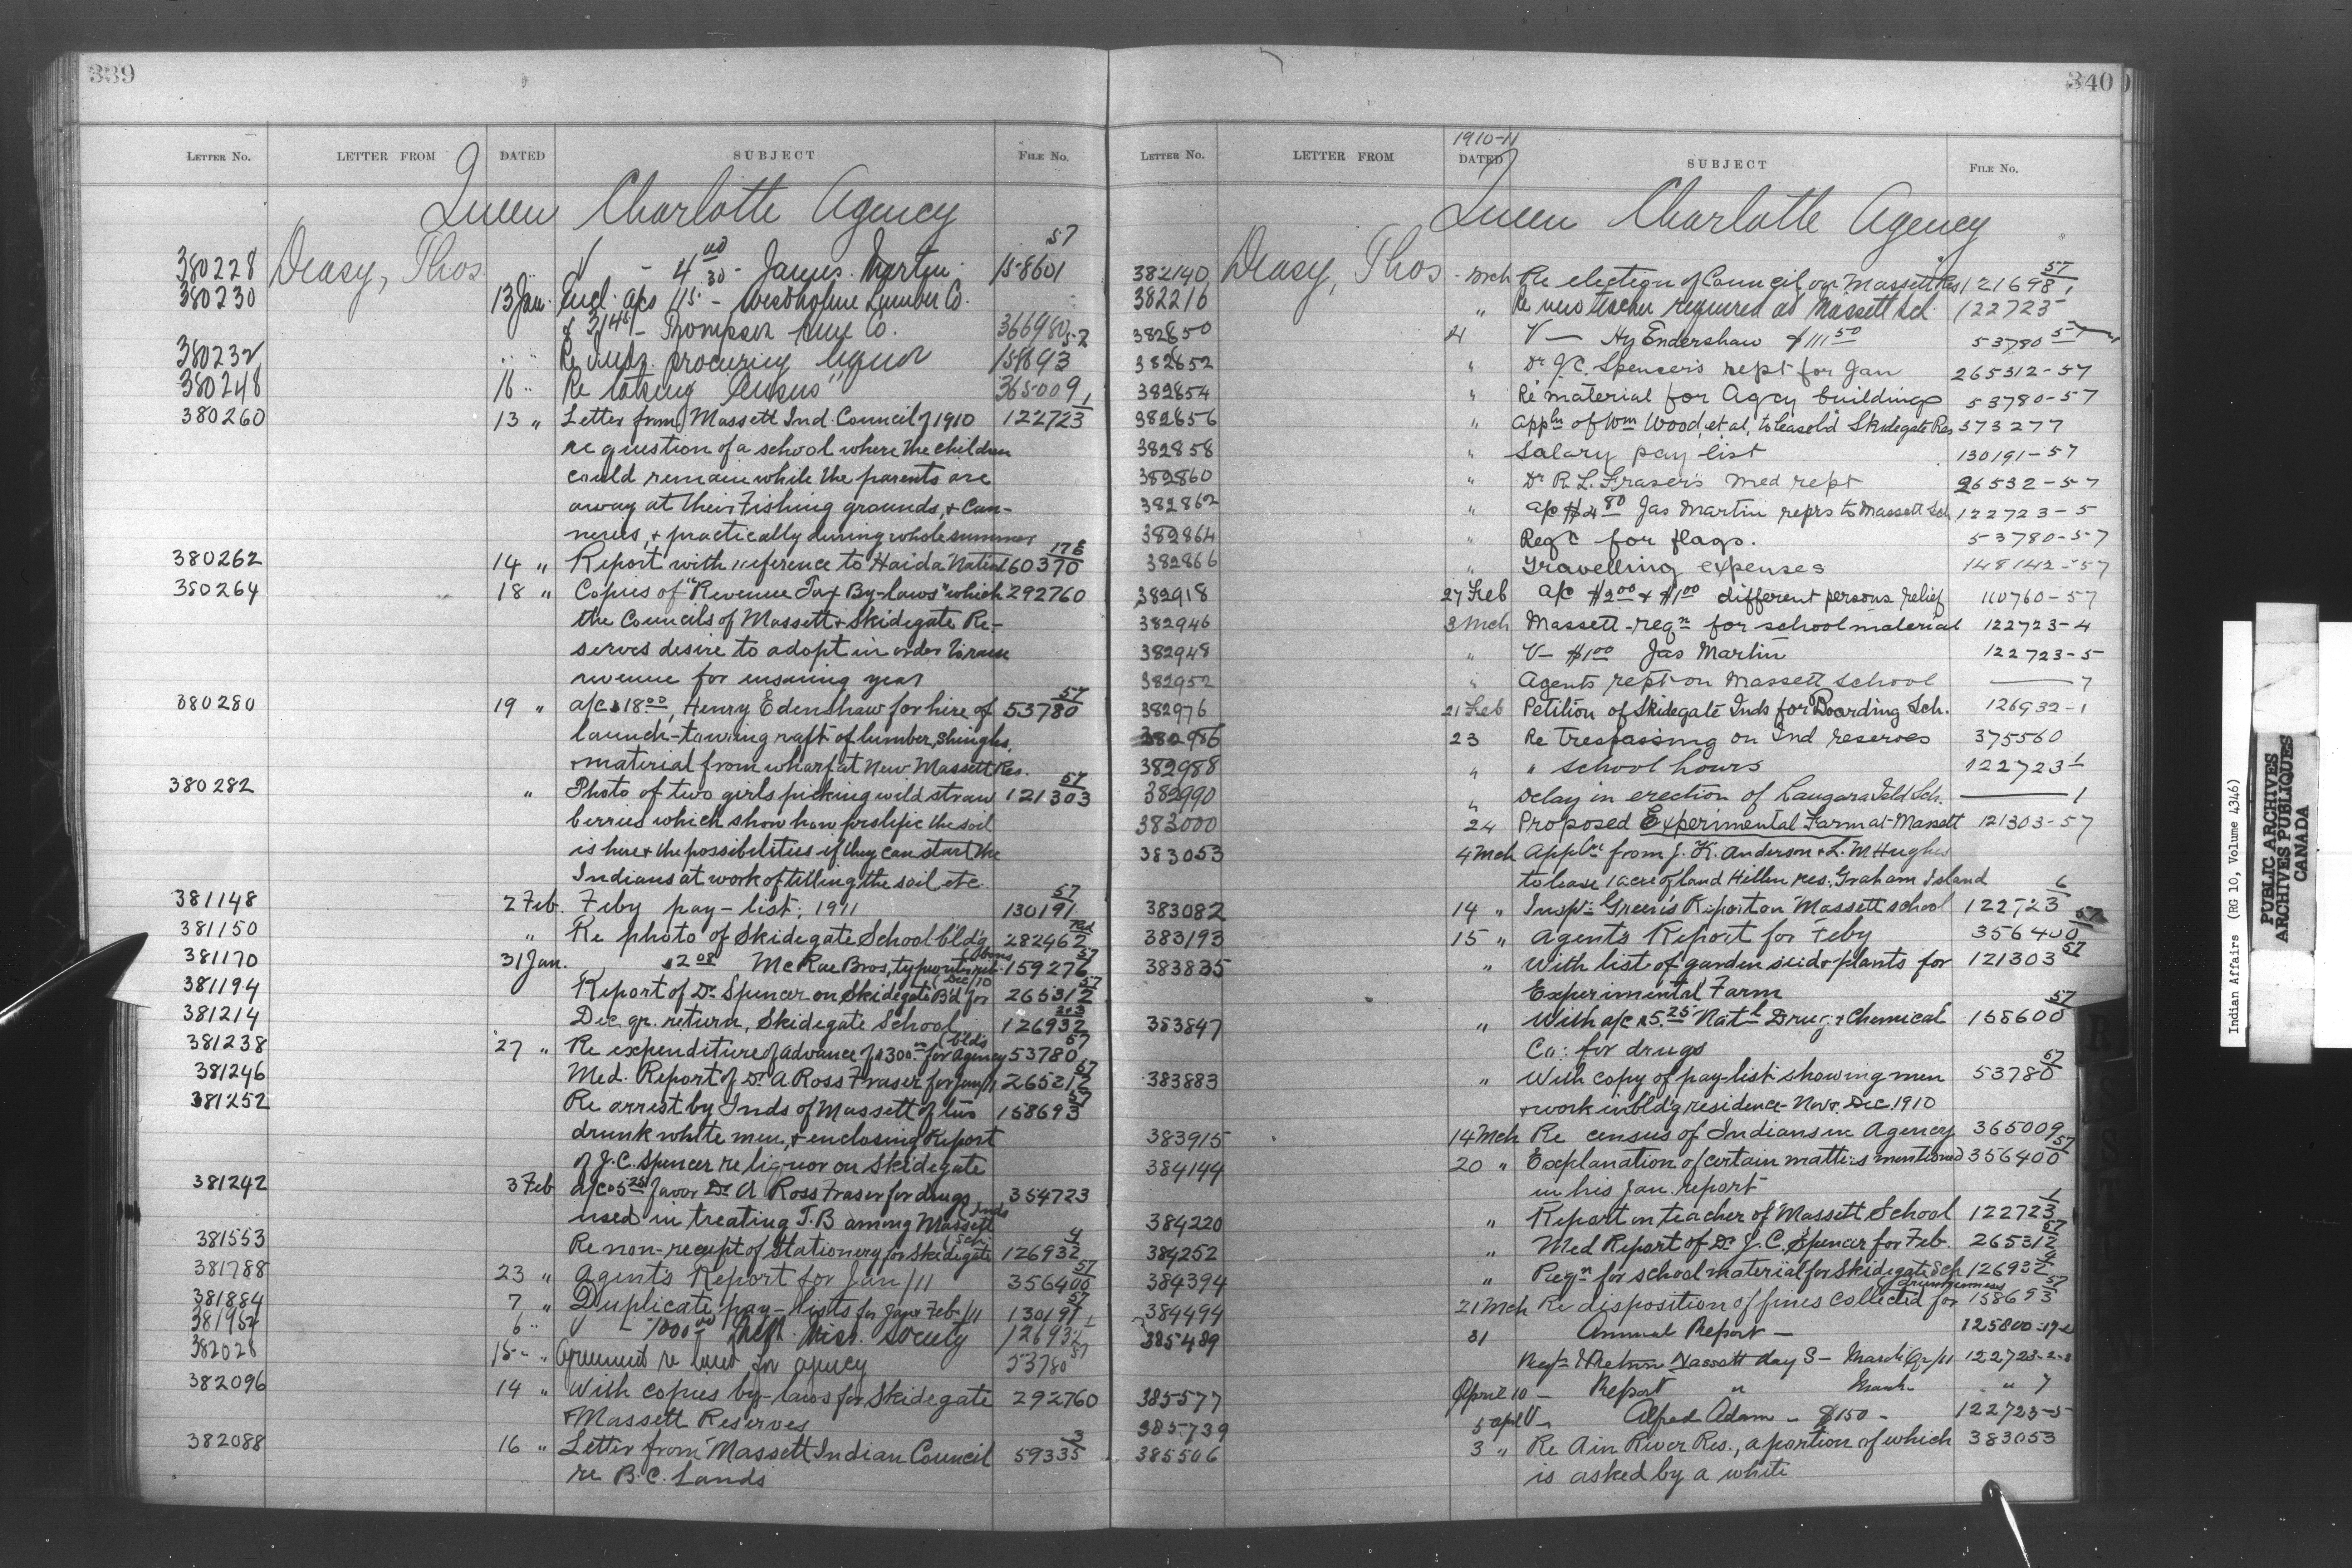 339
LETTER NO. LETTER FROM DATED SUBJECT FILE No.
Queen Charlotte Agency
380228 Deasy, Thos V - 4 00 30 - James Martin 158601 57
380230 13 Jan. Encl. a/cs 115 - Westholme Lumber Co.
& 314 - Thompson Co. 366980
380232 " " Re procuring liquor 158693 57
380248 16 " Re taking "Census" 365009 1
380260 13 " Letter from Massett Ind. Council of 1910 122723
re question of a school where the children
could remain while the parents are
away at their Fishing grounds, & Can-
neries, & practically during whole summer
380262 14 " Report with reference to Haida Nation 60370 178
380264 18 " Copies of "Revenue Tax By-laws" which 292760
the Councils of Massett & Skidegate Re-
serves desire to adopt in order to raise
revenue for ensuing year
380280 19 " a/c $18 00, Henry Edenshaw for hire of 53780 57
launch-towing raft of lumber, shingles,
& material from wharf at New Massett Res.
380282 " Photo of two girls picking wild straw 121303 57
berries which show how prolific the soil
is here & the possibilities if they can start the
Indians at work of tilling the soil etc.
381148 2 Feb. Feby pay-list, 1911 130191 57
381150 " Re photo of Skidegate School bld'g 282462
381170 31 Jan. $2 08 McRae Bros, typewriter rib- bons 159276 57
381194 Report of Dr Spencer on Skidegate B'd for Dec/10 265312 57
381214 Dec. qr. return, Skidegate School 126932 2&3
381238 27 " Re expenditure of advance of $300 00 for agency bld'g 53780 57
381246 Med. Report of Dr A Ross Fraser for Jan/11 265312 57
381252 Re arrest by Inds of Massett of two 158693 57
drunk white men, & enclosing Report
of J.C. Spencer re liquor on Skidegate
381242 3 Feb a/c $5 25 favor Dr A Ross Fraser for drugs 354723
used in treating T.B among Massett Inds
381553 Re non-receipt of Stationery for Skidegate Sch. 126932 4
381788 23 " Agent's Report for Jan/11 356400 57
381884 7 " Duplicate pay-lists for Jan & Feb/11 130191 57
381952 6 " V - 1000 00 Meth. Miss. Society 126932 1
382028 15 " Agreement re land for agency 53780 57
382096 14 " With copies by-laws for Skidegate 292760
& Massett Reserves
382088 16 " Letter from Massett Indian Council 59335 3
re B.C. Lands
340
1910-11
LETTER NO. LETTER FROM DATED SUBJECT FILE No.
Queen Charlotte Agency
382140 Deasy, Thos - Mch Re election of Council on Massett Res 121698 57
382216 " Re new teacher required at Massett Sch 122723
382650 4 V - Hy Endershaw $111 50 53780 57
382652 " Dr J.C. Spencer's rept for Jan 265312-57
382654 " Re material for Agcy buildings 53780-57
382656 " Appln of Wm Wood, et al, to lease l'd Skidegate Res 373277
382858 " Salary pay list 130191-57
382860 " Dr R. L. Fraser's Med rept 26532-57
382862 " a/c $4 80 Jas Martin reprs to Massett Sch 122723-5
382864 " Regc for flags. 53780-57
382866 " Travelling expenses 148142-57
382918 27 Feb a/c $2 00 & $1 00 different persons relief 110760-57
382946 3 Mch Massett-reqn for school material 122723-4
382948 " V - $1 00 Jas Martin 122723-5
382952 " Agents rept on Massett School — 7
382976 21 Feb Petition of Skidegate Inds for Boarding Sch. 126932-1
382986 23 Re trespassing on Ind reserves 375560
382988 " " school hours 122723 1
382990 " Delay in erection of Langara Isld Sch. — 1
383000 24 Proposed Experimental Farm at Massett 121303-57
383053 4 Mch Appln from J. K. Anderson & L. M Hughes
to lease 1 acre of land Hillen res. Graham Island
383082 14 " Insp: Green's Report on Massett school 122723 6
383193 15 " Agent's Report for Feby 356400 57
383835 " With list of garden seed & plants for 121303 57
Experimental Farm
383847 " With a/c $5.25 Natl Drug & Chemical 158600 57
Co: for drugs
383883 " With copy of pay-list showing men 53780 57
& work in bld'g residence - Nov & Dec. 1910
383915 14 Mch Re census of Indians in Agency 365009
384144 20 " Explanation of certain matters mentioned 356400 57
in his Jan. report
384220 " Report on teacher of Massett School 122723 1
384252 " Med Report of Dr J. C. Spencer for Feb. 265312 57
384394 " Reqn for school material for Skidegate Sch 126932 4
384494 21 Mch Re disposition of fines collected for drunkenness 158693 57
385489 31 Annual Report - 125800
Reqn & Return Massett day S - March Qr/11 122723-2-3
385577 April 10 - Report " March " 7
385739 5 apl V - Alfred Adam - $150 - 122723-5
385506 3 " Re Ain River Res., a portion of which 383053
is asked by a white
Indian Affairs (RG 10, Volume 4346)
PUBLIC ARCHIVES
ARCHIVES PUBLIQUES
CANADA